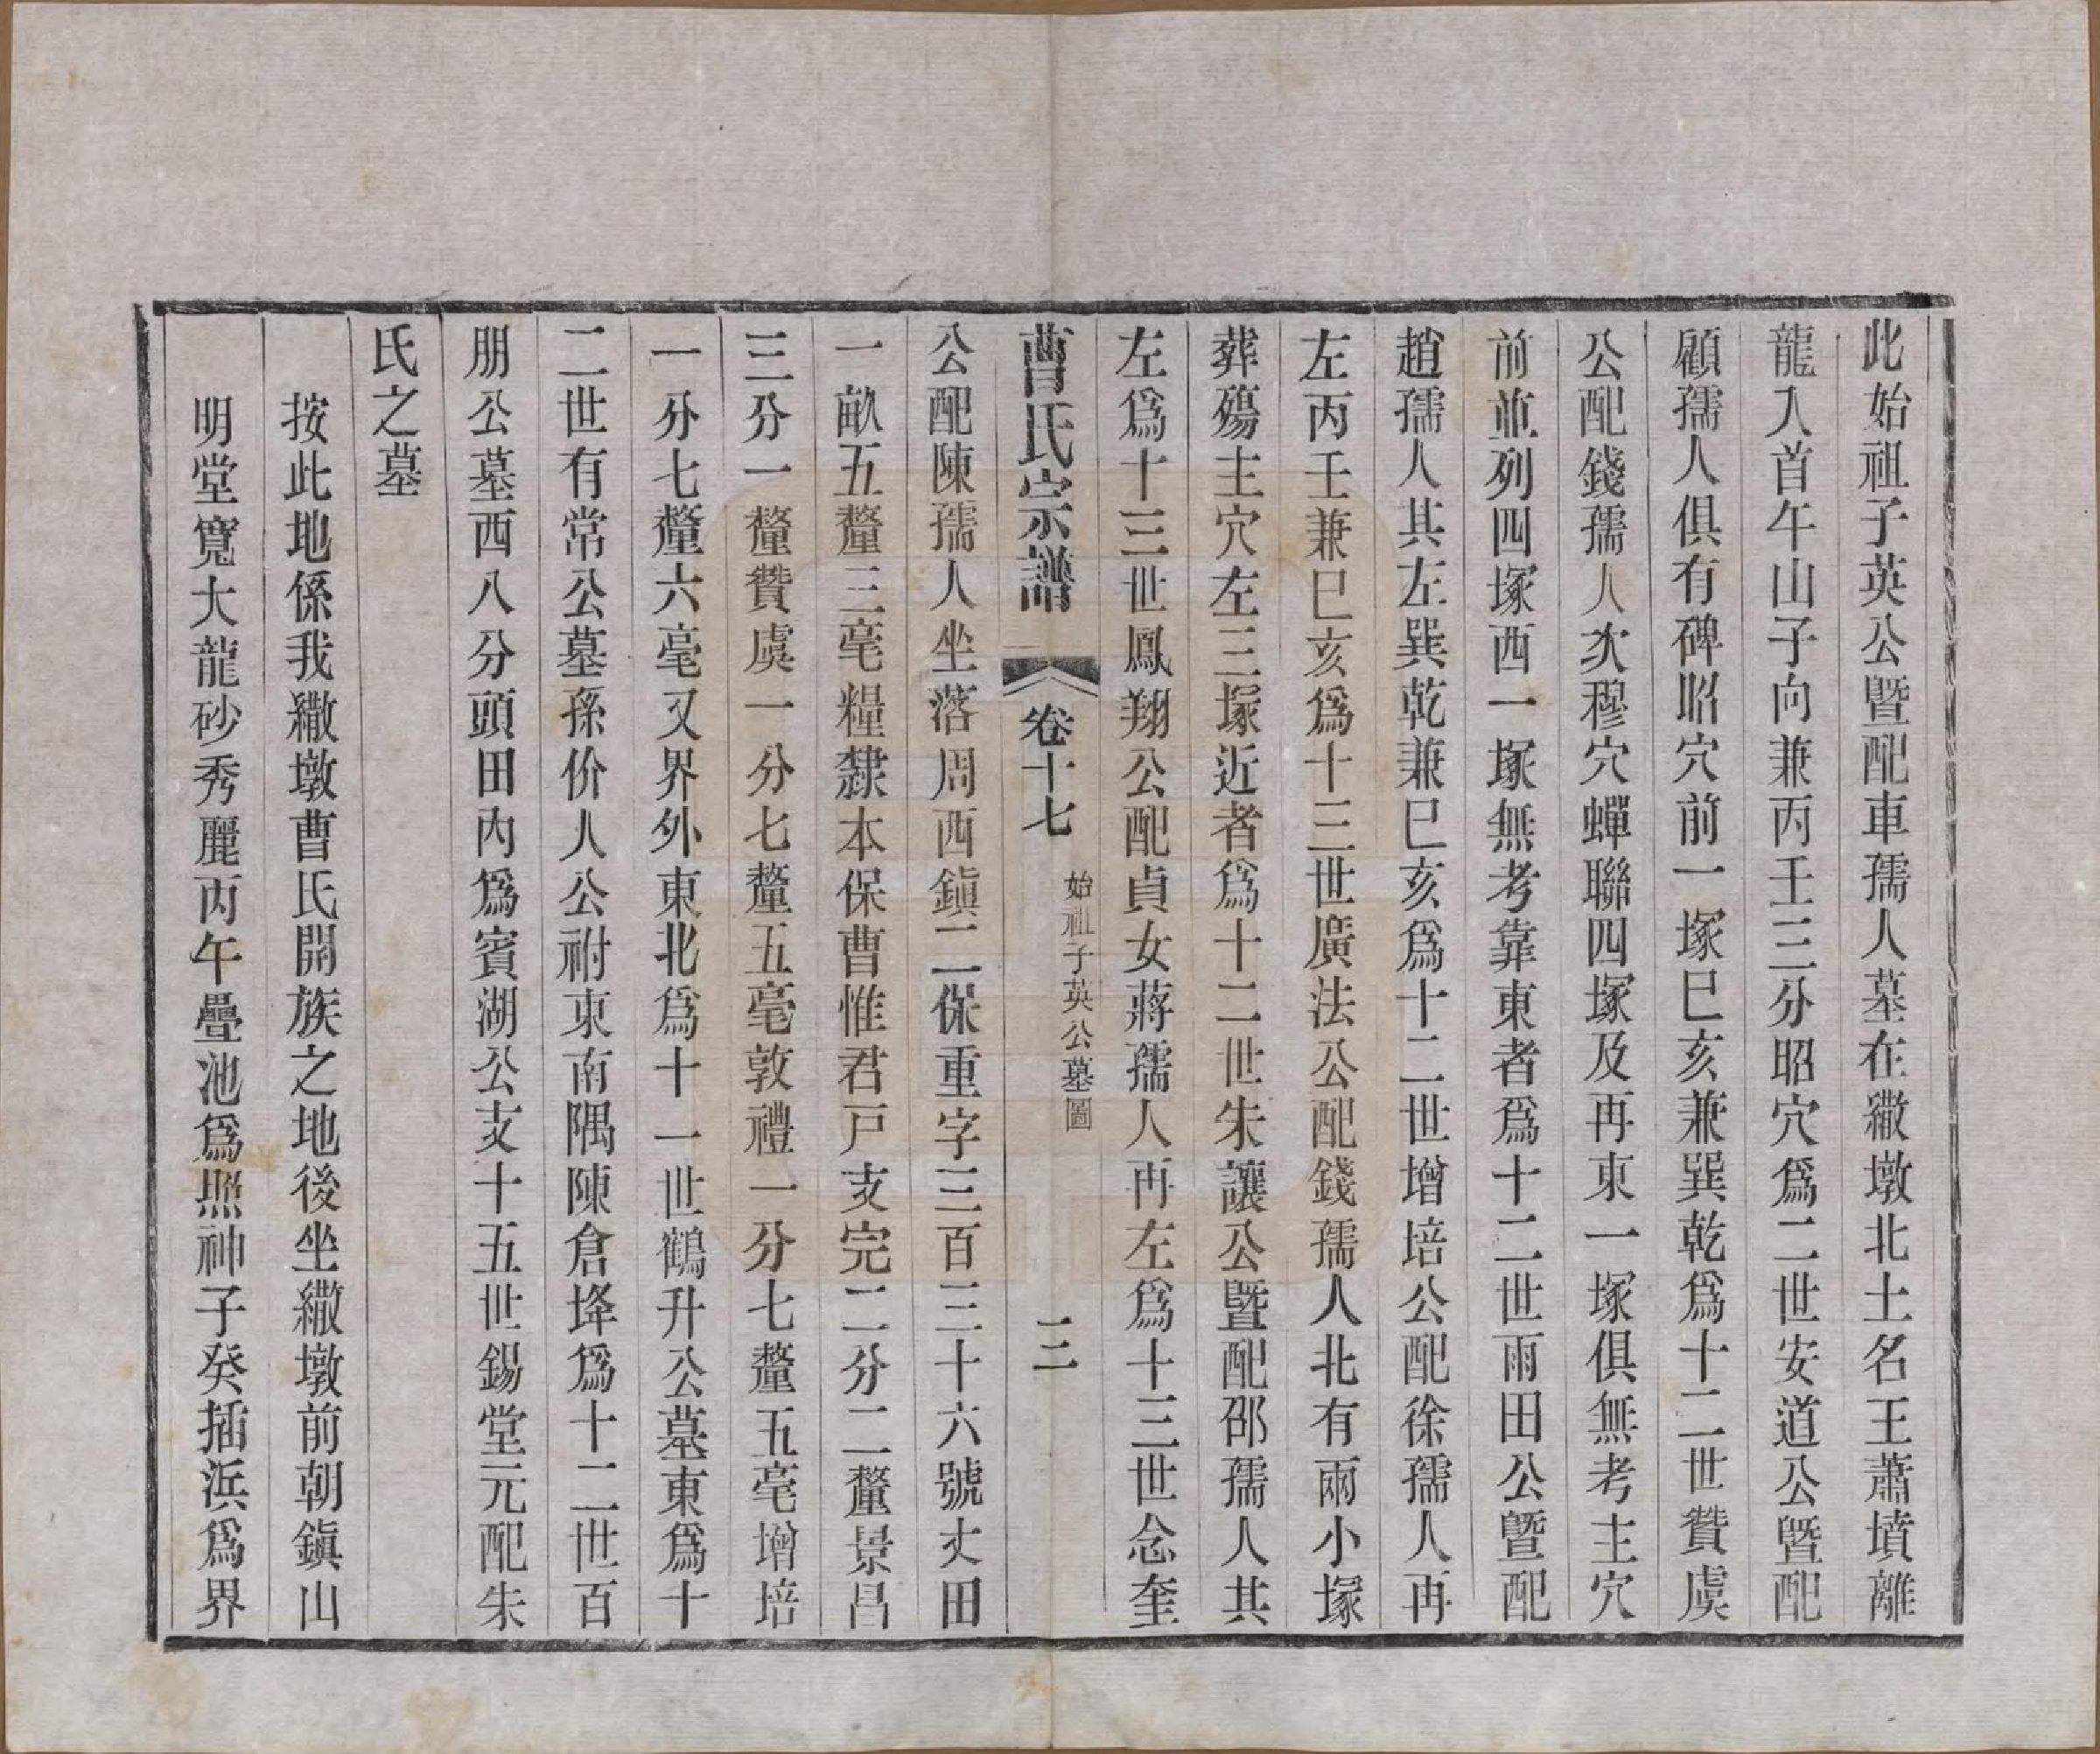 此始祖子英公暨配車孺人墓在繖墩北土名王蕭墳離
龍入首午山子向兼丙壬三分昭穴爲二世安道公暨配
顧孺人俱有碑昭穴前一塚巳亥兼巽乾爲十二世贊虞
公配錢孺人次穆穴蟬聯四塚及再東一塚俱無考主穴
前並列四塚西一塚無考靠東者爲十二世雨田公暨配
趙孺人其左巽乾兼巳亥爲十二世增培公配徐孺人再
左丙壬兼巳亥爲十三世廣法公配錢孺人北有兩小塚
葬殤主穴左三塚近者爲十二世朱讓公暨配邵孺人其
左爲十三世鳳翔公配貞女蔣孺人再左爲十三世念奎
曹氏宗譜 卷十七 始祖子英公墓圖 二二
公配陳孺人坐落周西鎮二保重字三百三十六號丈田
一畝五釐三毫糧隸本保曹惟君戸支完二分二釐景昌
三分一釐贊虞一分七釐五毫敦禮一分七釐五毫增培
一分七釐六毫又界外東北爲十一世鶴升公墓東爲十
二世有常公墓孫价人公祔東南隅陳倉垶爲十二世百
朋公墓西八分頭田內爲賓湖公支十五世錫堂元配朱
氏之墓
按此地係我繖墩曹氏開族之地後坐繖墩前朝鎮山
明堂寬大龍砂秀麗丙午疊池爲照神子癸插浜爲界